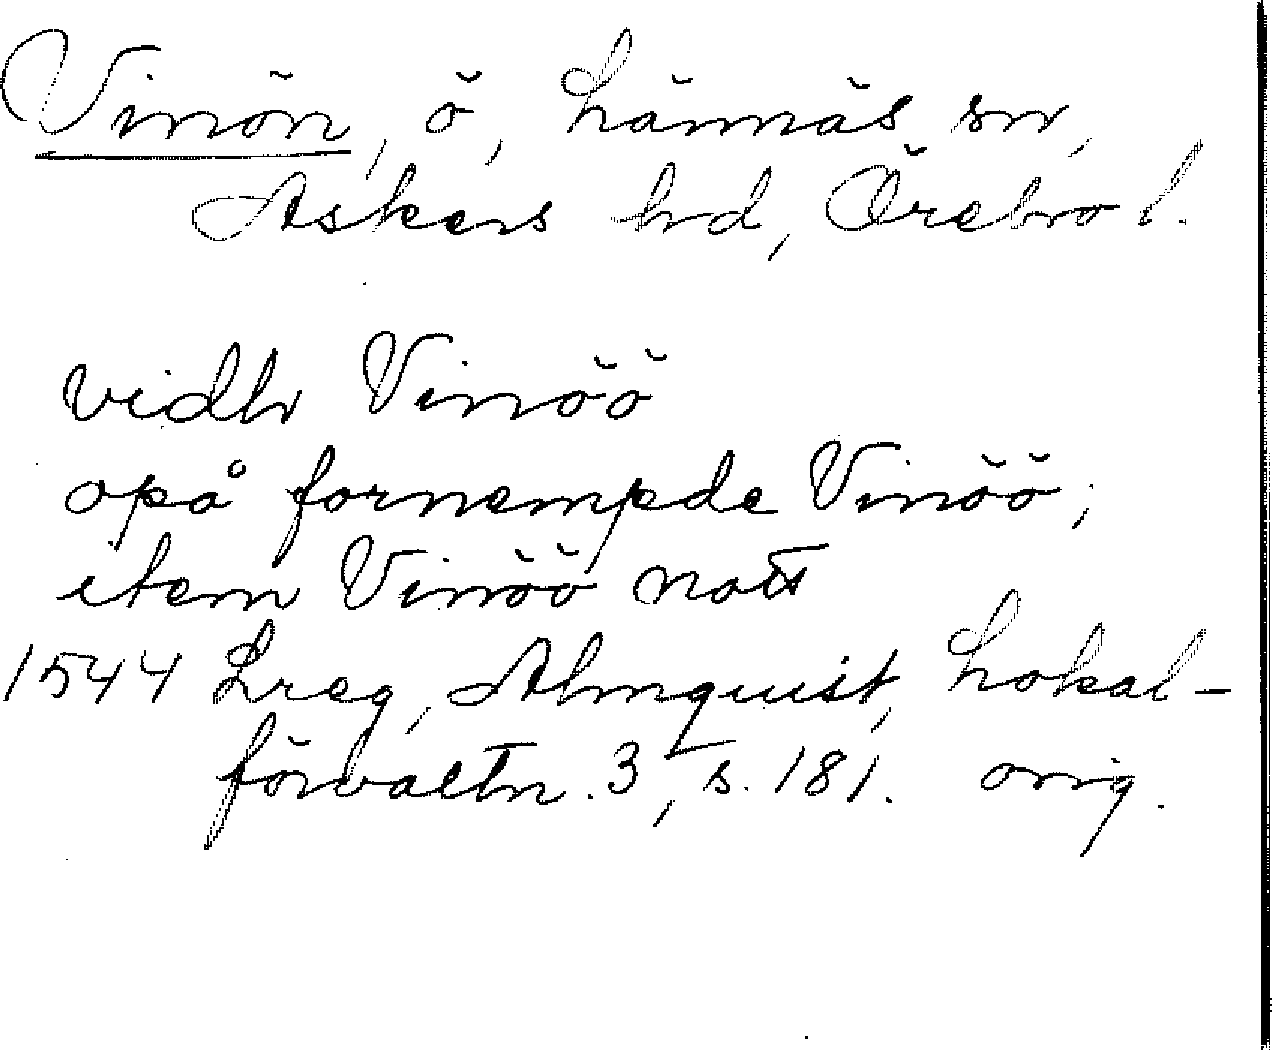 Vinön, ö, Lännäs sn,
Askers hd, Örebro l.
vidh Vinöö
opå fornempde Vinöö;
item Vinöö nott
1544 Lreg, Almquist, Lokal-
förvaltn. 3, s. 181. orig.